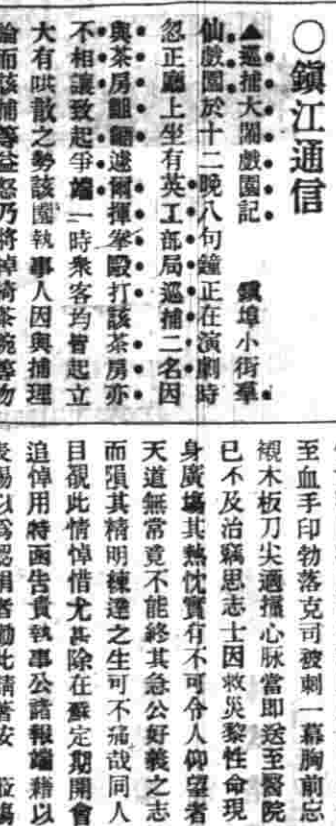 ○鎮江通信
▲巡捕大鬧戲園記　鎮埠小街羣
仙戲園於十二晚八句鐘正在演劇時
忽正廳上坐有英工部局巡捕二名因
與茶房齟齬遽爾揮拳毆打該茶房亦
不相讓致起爭端一時衆客均皆起立
大有哄散之勢該園執事人因與捕理
論而該捕等益怒乃將棹椅茶碗等物
至血手印勃落克司被刺一幕胸前忘
襯木板刀尖適攝心脉當即送至醫院
已不及治竊思志士因救災黎性命現
身廣塲其熱忱實有不可令人仰望者
天道無常竟不能終其急公好義之志
而隕其精明練達之生可不痛哉同人
目覩此情悼惜尤甚除在蘇定期開會
追悼用特函告貴執事公諸報端藉以